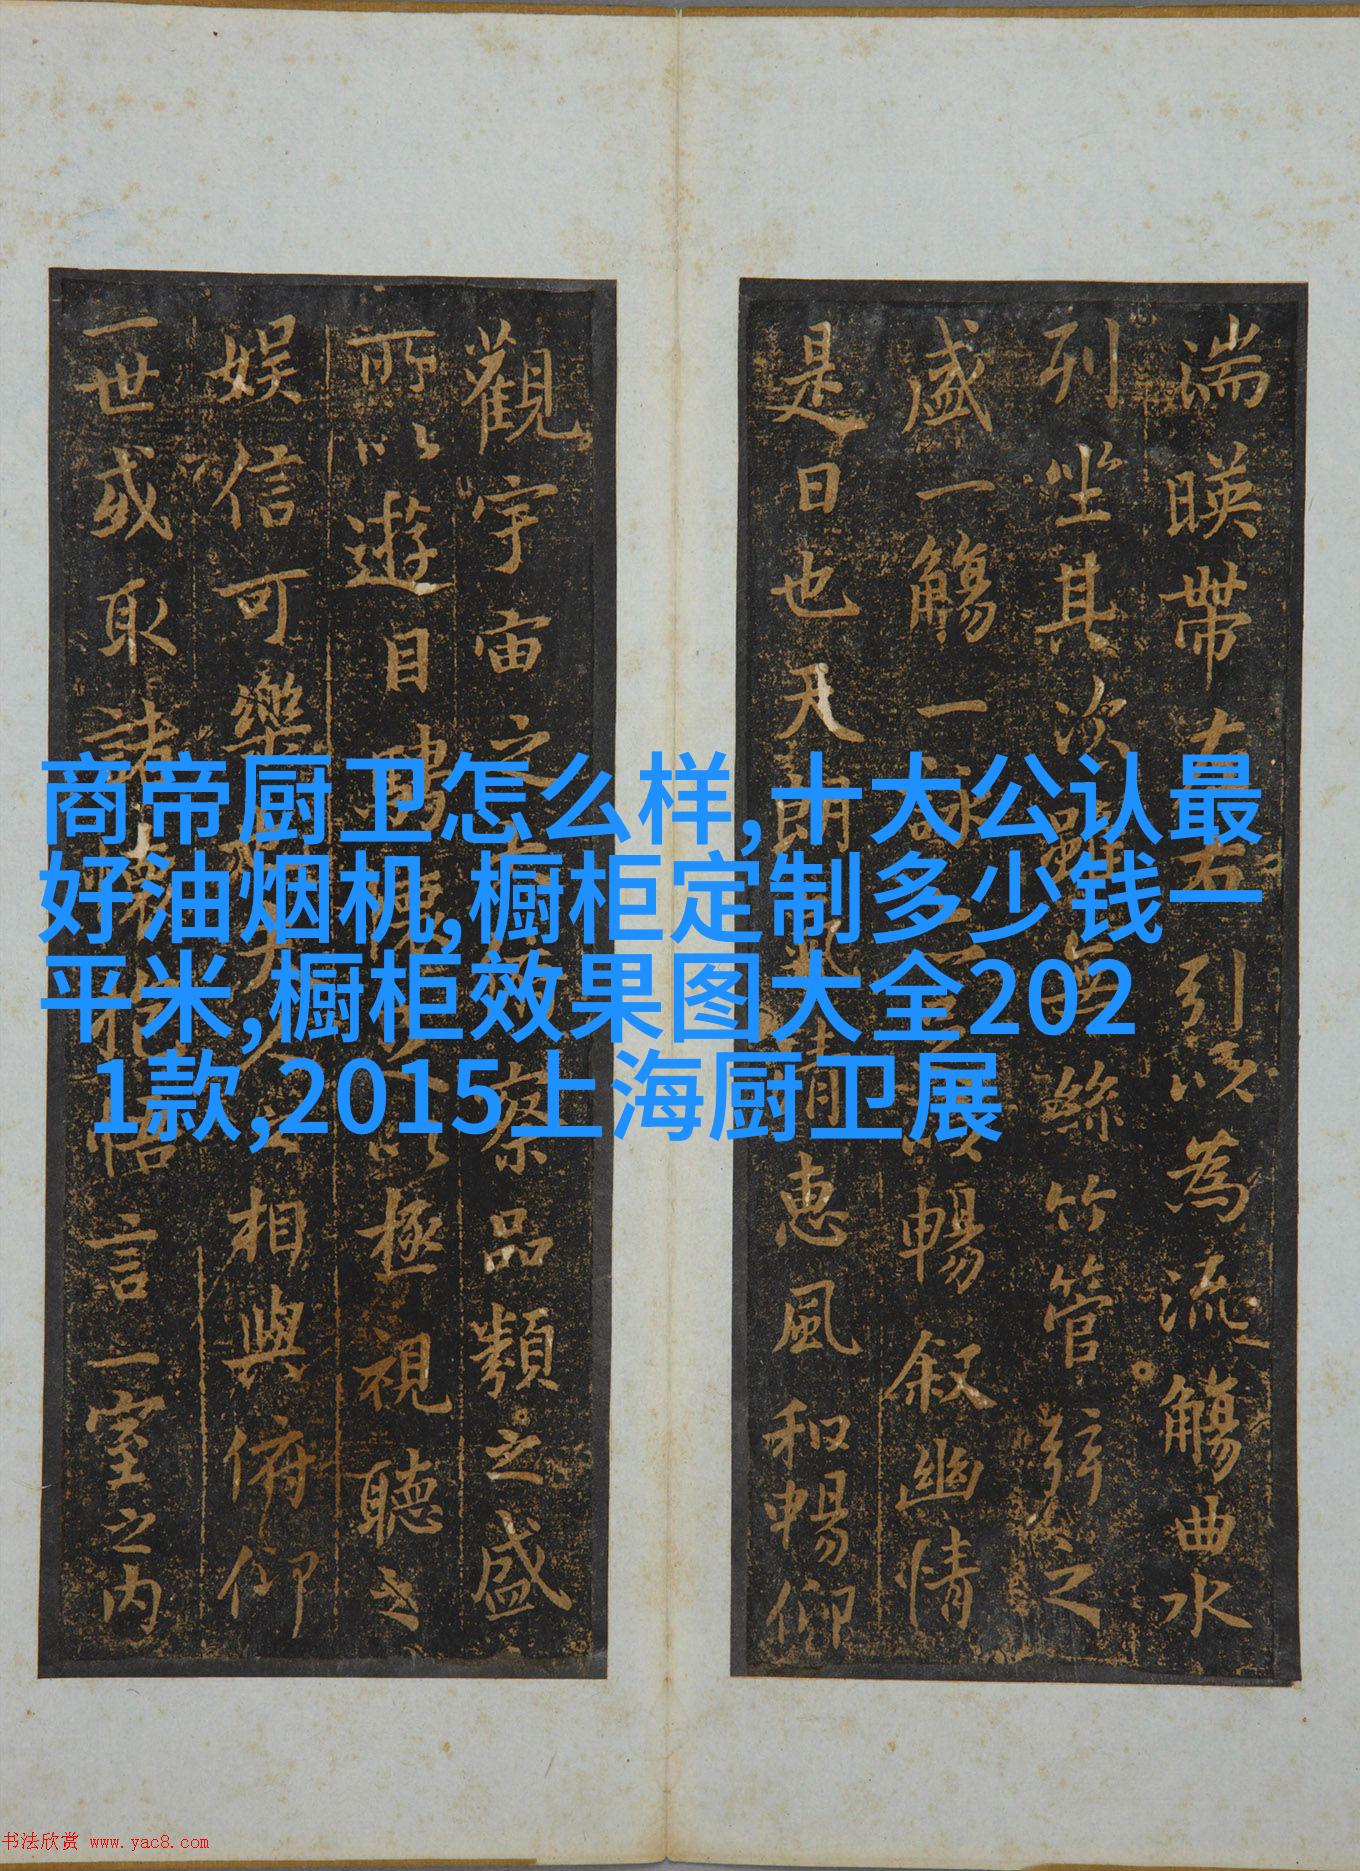 湍暎帶左右引以為流觴曲水
列坐其次雖無絲竹管弦之
盛一觴一詠亦足以暢叙幽情
是日也天朗氣清惠風和暢仰
觀宇宙之大俯察品類之盛
所以遊目騁懷足以極視聽之
娛信可樂也夫人之相與俯仰
一世或取諸懷抱悟言一室之内
商帝厨卫怎么样,十大公认最
好油烟机,橱柜定制多少钱一
平米,橱柜效果图大全202
1款,2015上海厨卫展
书法欣赏 www.yac8.com